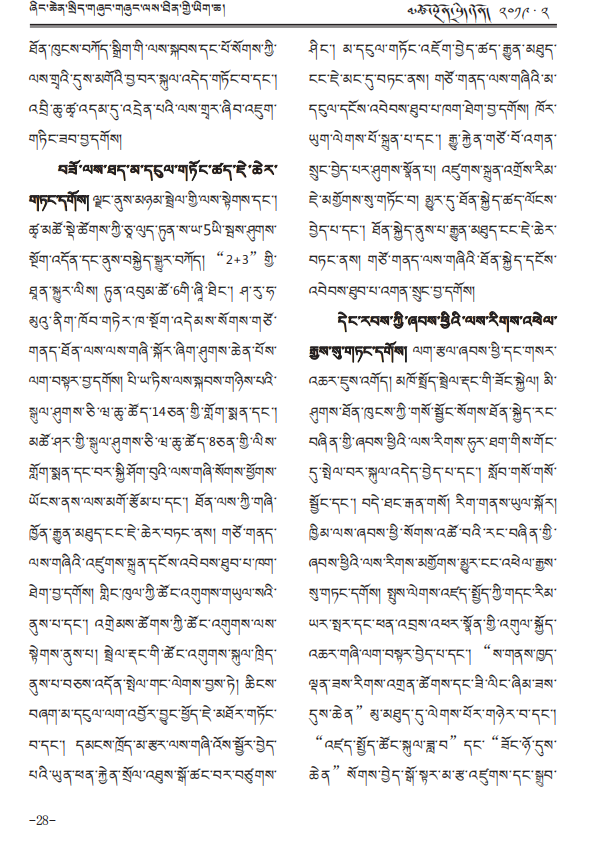 ཞིང་ཆེན་སྲིད་གཞུང་གཞུང་ལས་ཐིན་གྱི་ཡིག་ཆ།
༢༠༡༩ · ༢
ཐོན་ཁུངས་བཀོད་སྒྲིག་གི་ལས་སྐབས་དང་པོ་སོགས་ཀྱི་
ལས་གྲྭའི་དུས་མགོའི་བྱ་བར་སྐུལ་འདེད་གཏོང་བ་དང་།
འབྲི་ཆུ་ཚྭ་འདམ་དུ་འདྲེན་པའི་ལས་གྲྭར་ཞིབ་འཇུག་
གཏིང་ཟབ་བྱ་དགོས།
བཟོ་ལས་ཐད་མ་དངུལ་གཏོང་ཚད་ཇེ་ཆེར་
གཏང་དགོས། ལྗང་ནུས་མཉམ་སྦྲེལ་གྱི་ལས་སྟེགས་དང་།
ཚྭ་མཚོ་སྡེ་ཚོགས་ཀྱི་ཅྭ་ལུད་ཏུན་ས་ཡ་5ཡི་སྦས་ཤུགས་
སྔོག་འདོན་དང་ནུས་བསྐྱེད་སྒྱུར་བཀོད། “2+3”གྱི་
ཐཱན་སྐྱུར་ལིས། ཏུན་འབུམ་ཚོ་6གི་ཞཱི་ཐིང་། ཤ་རུ་ཧ་
མུའུ་ནིག་ཁོབ་གཏེར་ཁ་སྔོག་འདེམས་སོགས་གཙོ་
གནད་ཐོན་ལས་ལས་གཞི་སྐོར་ཞིག་ཤུགས་ཆེན་པོས་
ལག་བསྟར་བྱ་དགོས། པི་ཡ་ཏིས་ལས་སྐབས་གཉིས་པའི་
སྒུལ་ཤུགས་ཅི་ཝ་ཆུ་ཚོད་14ཅན་གྱི་གློག་སྨན་དང་།
མཚོ་ཤར་གྱི་སྒུལ་ཤུགས་ཅི་ཝ་ཆུ་ཚོད་8ཅན་གྱི་ལིས་
གློག་སྨན་དང་བར་སྐྱི་ཤོག་བུའི་ལས་གཞི་སོགས་ཕྱོགས་
ཡོངས་ནས་ལས་མགོ་རྩོམ་པ་དང་། ཐོན་ལས་ཀྱི་གཞི་
ཁྱོན་རྒྱུན་མཐུད་ངང་ཇེ་ཆེར་བཏང་ནས། གཙོ་གནད་
ལས་གཞིའི་འཛུགས་སྐྲུན་དངོས་འབེབས་ཐུབ་པ་ཁག་
ཐེག་བྱ་དགོས། གླིང་ཁུལ་ཀྱི་ཚོང་འགུགས་གཡུལ་སའི་
ནུས་པ་དང་། འགྲེམས་ཚོགས་ཀྱི་ཚོང་འགུགས་ལས་
སྟེགས་ནུས་པ། སྦྲེལ་རྡང་གི་ཚོང་འགུགས་སྐུལ་ཁྲིད་
ནུས་པ་བཅས་འདོན་སྤེལ་གང་ལེགས་བྱས་ཏེ། ཆིངས་
བཞག་མ་དངུལ་ལག་འབྱོར་བྱུང་ཕྱོད་ཇེ་མཐོར་གཏོང་
བ་དང་། དམངས་ཁྲོད་མ་རྩར་ལས་གཞི་འོས་སྦྱོར་བྱེད་
པའི་ཡུན་ཕན་རྐྱེན་སྲོལ་འཐུས་སྒོ་ཚང་བར་བཙུགས་
ཤིང་། མ་དངུལ་གཏོང་འཇོག་བྱེད་ཚད་རྒྱུན་མཐུད་
ངང་ཇེ་མང་དུ་བཏང་ནས། གཙོ་གནད་ལས་གཞིའི་མ་
དངུལ་དངོས་འབེབས་ཐུབ་པ་ཁག་ཐེག་བྱ་དགོས། ཁོར་
ཡུག་ལེགས་པོ་སྐྲུན་པ་དང་། རྒྱུ་རྐྱེན་གཙོ་བོ་འགན་
སྲུང་བྱེད་པར་ཤུགས་སྣོན་པ། འཛུགས་སྐྲུན་འགྲོས་རིམ་
ཇེ་མགྱོགས་སུ་གཏོང་བ། མྱུར་དུ་ཐོན་སྐྱེད་ཚད་ལོངས་
བྱེད་པ་དང་། ཐོན་སྐྱེད་ནུས་པ་རྒྱུན་མཐུད་ངང་ཇེ་ཆེར་
བཏང་ནས། གཙོ་གནད་ལས་གཞིའི་ཐོན་སྐྱེད་དངོས་
འབེབས་ཐུབ་པ་འགན་སྲུང་བྱ་དགོས།
དེང་རབས་ཀྱི་ཞབས་ཕྱིའི་ལས་རིགས་འཕེལ་
རྒྱས་སུ་གཏང་དགོས། ལག་རྩལ་ཞབས་ཕྱི་དང་གསར་
འཆར་ཇུས་འགོད། མཁོ་སྤྲོད་སྦྲེལ་རྡང་གི་ཟོང་སྐྱེལ། མི་
ཤུགས་ཐོན་ཁུངས་ཀྱི་གསོ་སྦྱོང་སོགས་ཐོན་སྐྱེད་རང་
བཞིན་གྱི་ཞབས་ཕྱིའི་ལས་རིགས་ཧུར་ཐག་གིས་གོང་
དུ་སྤེལ་བར་སྐུལ་འདེད་བྱེད་པ་དང་། སློབ་གསོ་གསོ་
སྦྱོང་དང་། བདེ་ཐང་རྒན་གསོ། རིག་གནས་ཡུལ་སྐོར།
ཁྱིམ་ལས་ཞབས་ཕྱི་སོགས་འཚོ་བའི་རང་བཞིན་གྱི་
ཞབས་ཕྱིའི་ལས་རིགས་མགྱོགས་མྱུར་ངང་འཕེལ་རྒྱས་
སུ་གཏང་དགོས། སྤུས་ལེགས་འཛད་སྤྱོད་ཀྱི་གདང་རིམ་
ཡར་སྤར་དང་ཕན་འབྲས་འཕར་སྣོན་གྱི་འགུལ་སྐྱོད་
འཆར་གཞི་ལག་བསྟར་བྱེད་པ་དང་། “ས་གནས་ཁྱད་
ལྡན་ཟས་རིགས་འགྲན་ཚོགས་དང་ཟི་ལིང་ཞིམ་ཟས་
དུས་ཆེན”མུ་མཐུད་དུ་ལེགས་པོར་གཉེར་བ་དང་།
“འཛད་སྤྱོད་ཚོང་སྐུལ་ཟླ་བ”དང་“ཟོང་ཉོ་དུས་
ཆེན”སོགས་བྱེད་སྒོ་སྟར་མ་རྩ་འཛུགས་དང་སྒྲུབ་
-28-